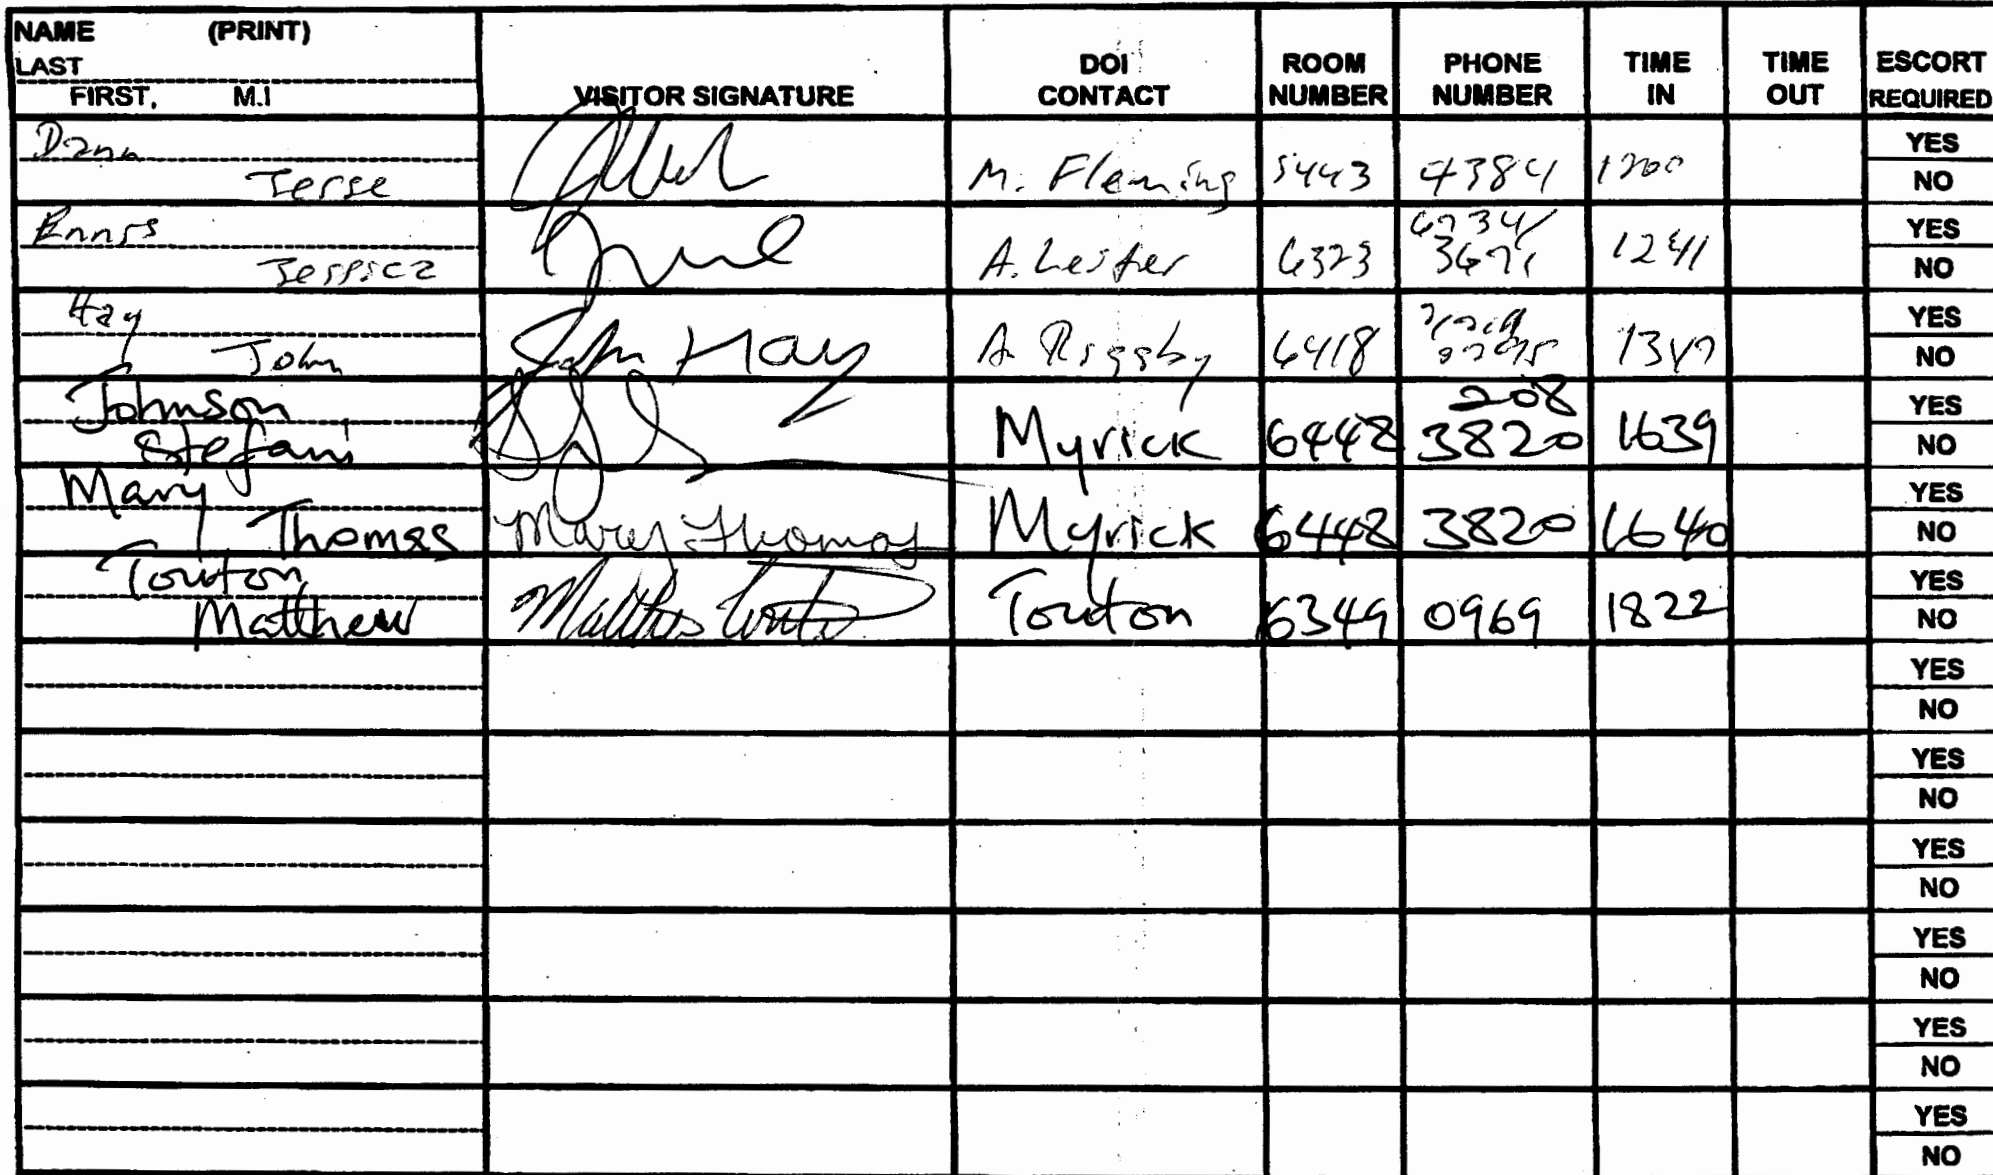 NAME (PRINT)
LAST
FIRST, M.I
VISITOR SIGNATURE
DOI CONTACT
ROOM NUMBER
PHONE NUMBER
TIME IN
TIME OUT
ESCORT REQUIRED
Dana
Jesse M. Fleming 5443 4384 1200
YES
NO
Ennis
Jessica A. Lester 6323 6734/ 3671 1241
YES
NO
Hay
John John Hay A. Rigsby 6418 1347
YES
NO
Johnson
Stefani Myrick 6448 208 3820 1639
YES
NO
Mary
Thomas Mary Thomas Myrick 6448 3820 1640
YES
NO
Touton
Matthew Matthew Touton Touton 6349 0969 1822
YES
NO
YES
NO
YES
NO
YES
NO
YES
NO
YES
NO
YES
NO